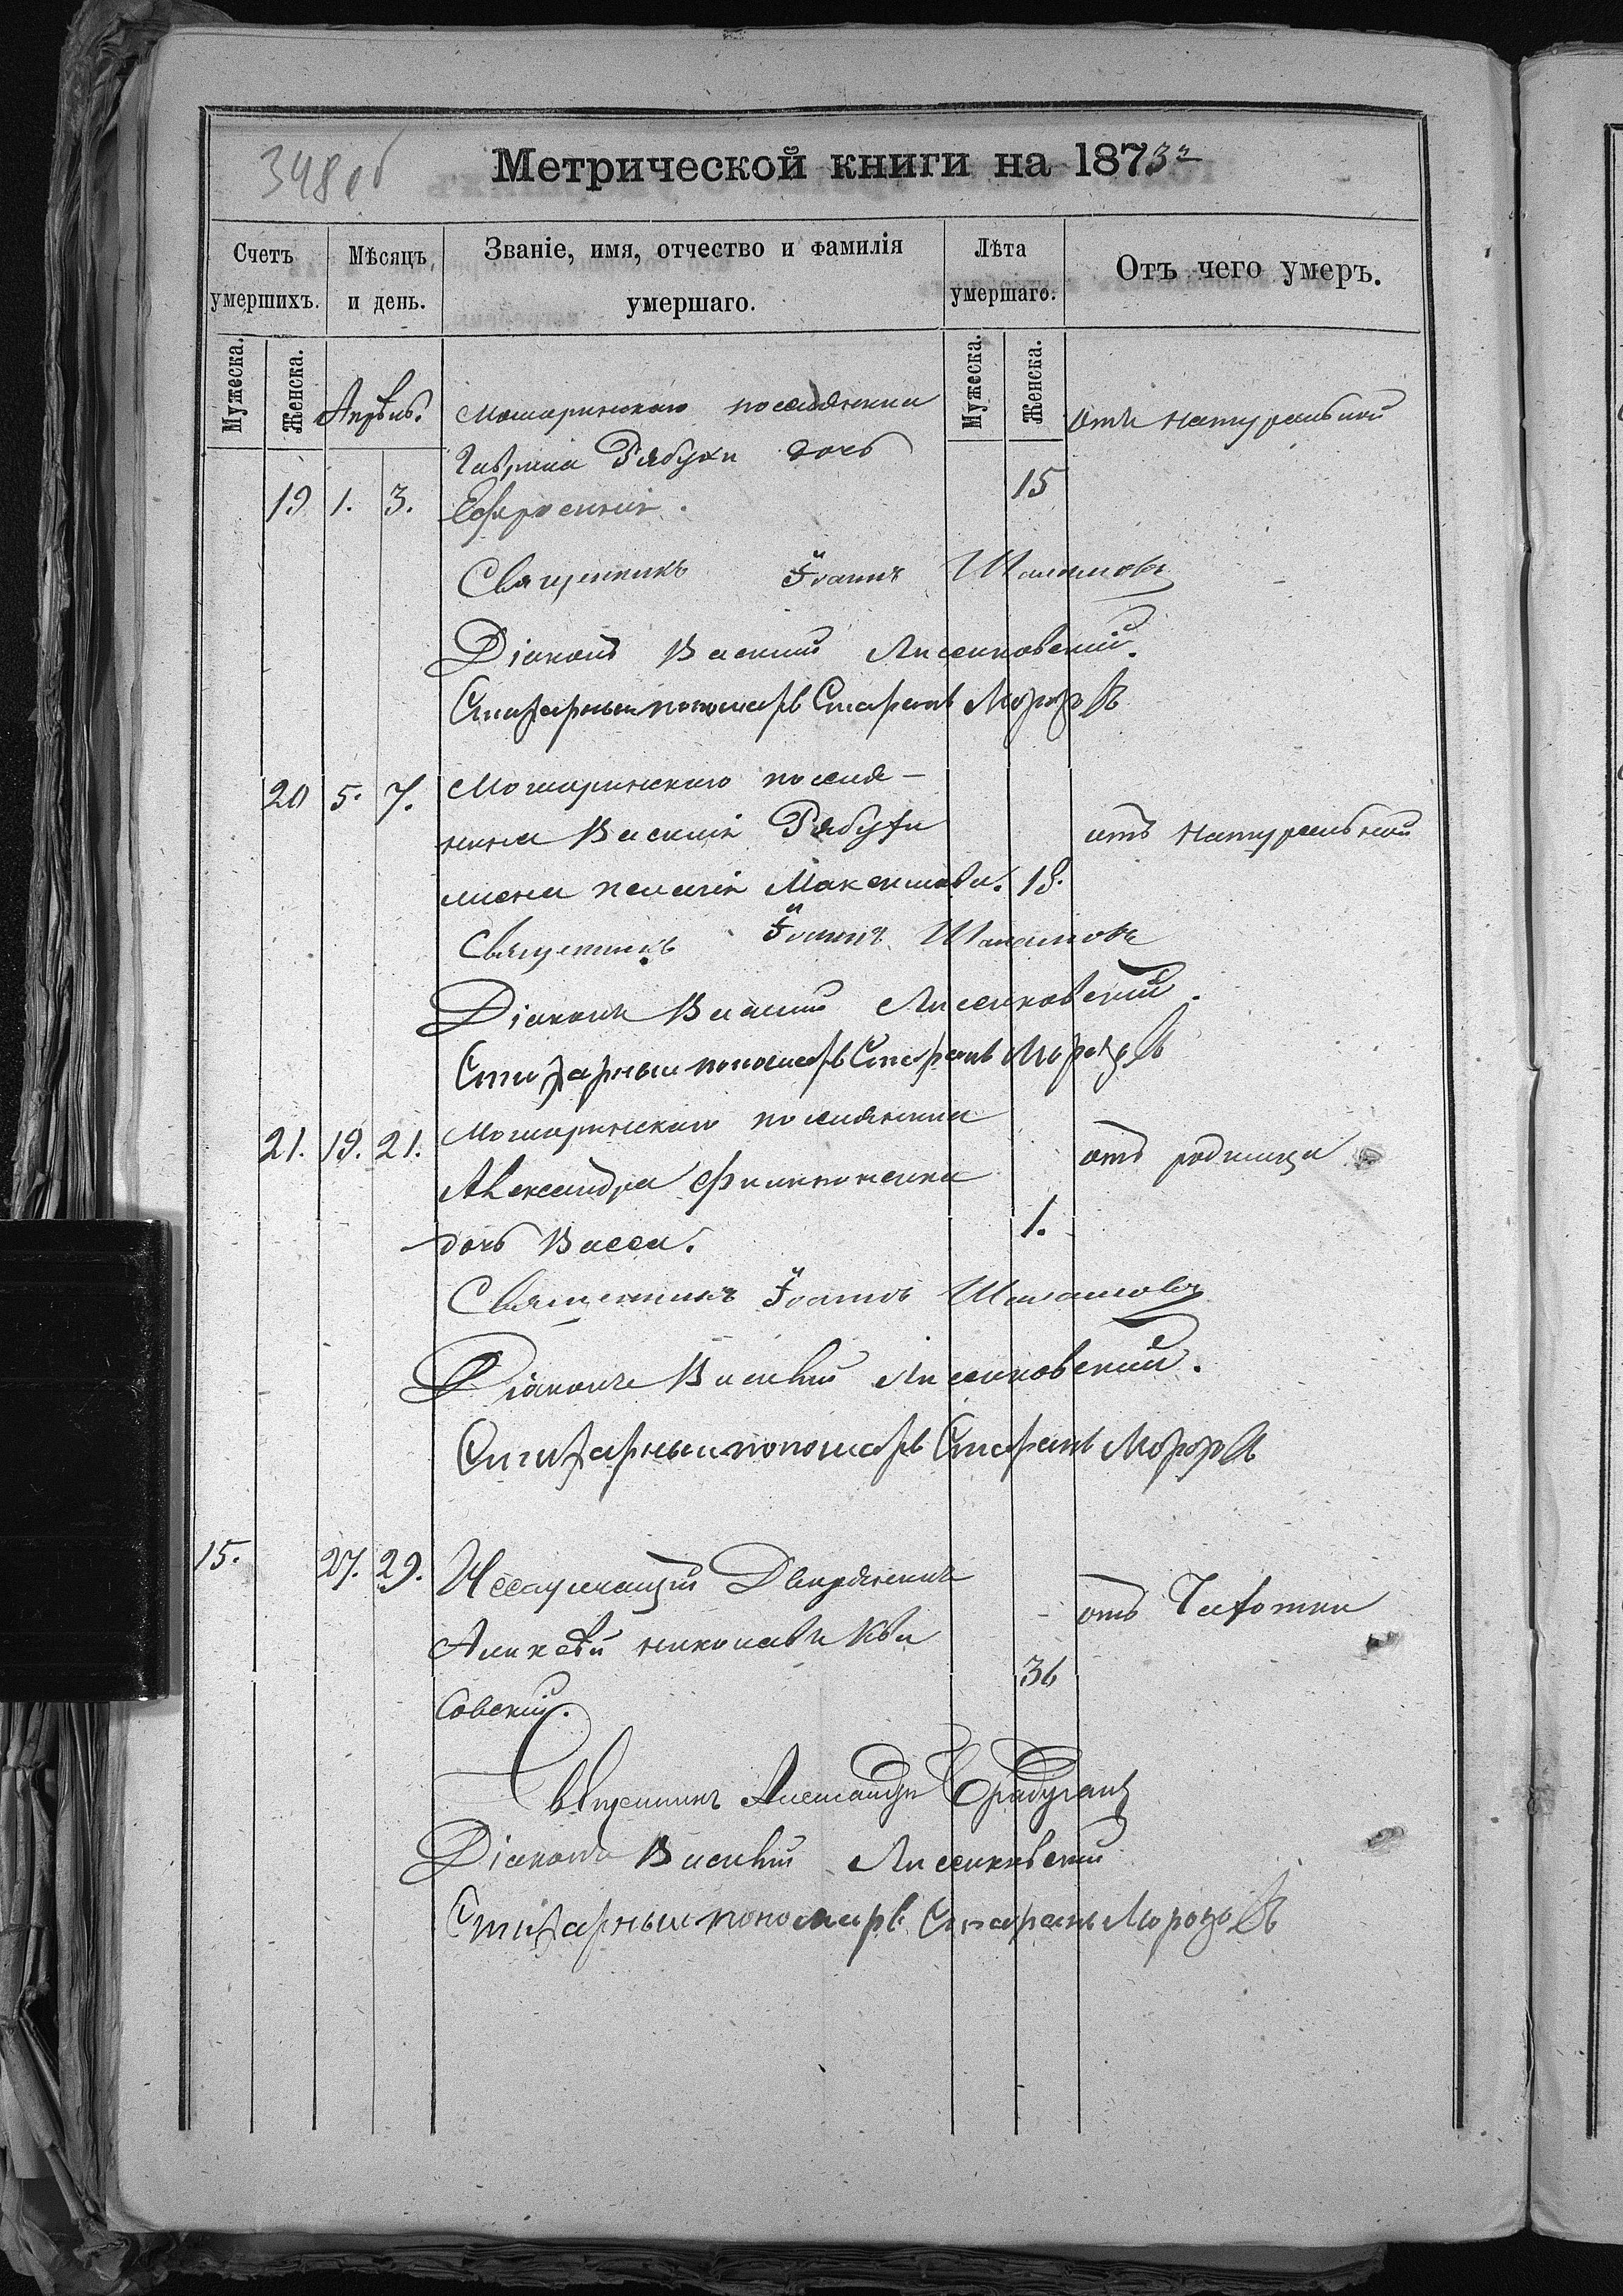 348 об
Метрической книги на 1873й
Счетъ умершихъ.
Мѣсяцъ и день.
Званіе, имя, отчество и фамилія умершаго.
Лѣта умершаго.
Отъ чего умеръ.
Мужеска.
Женска.
Мужеска.
Женска.
Апрѣль.
поселянина
отъ натуральной
Гаврила Рябухи дочь
19 1. 3. Ефросинія. 15
Священникъ Іоаннъ Шаламовъ
Діаконъ Василій Лисенковскій.
Стихарный пономарь Стефанъ Морозовъ
20 5. 7. поселя-
нина Василія Рябухи отъ натуральной
жена Пелагія Максимова. 18.
Священникъ Іоаннъ Шаламовъ
Діаконъ Василій Лисенковскій.
Стихарный пономарь Стефанъ Морозовъ
21. 19. 21. поселянина
отъ родимца
Александра Филипоненка
1.
дочь Васса.
Священникъ Іоаннъ Шаламовъ
Діаконъ Василій Лисенковскій.
Стихарный пономарь Стефанъ Морозовъ
15. 27. 29. Неслужащій Дворянинъ
отъ Чахотки
Алексѣй Николаевъ Ква
36
совскій.
Священникъ Александръ
Діаконъ Василій Лисенковскій
Стихарный пономарь Стефанъ Морозовъ